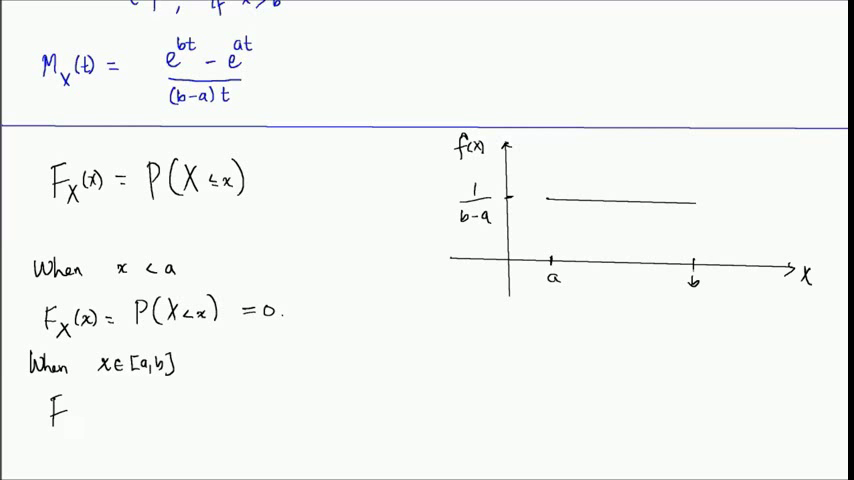 1, if x>b
M_X(t) = \frac{e^{bt} - e^{at}}{(b-a)t}
F_X(x) = P(X ≤ x)
When x < a
F_X(x) = P(X<x) = 0.
When x ∈ [a,b]
F
f(x)
\frac{1}{b-a}
a b X